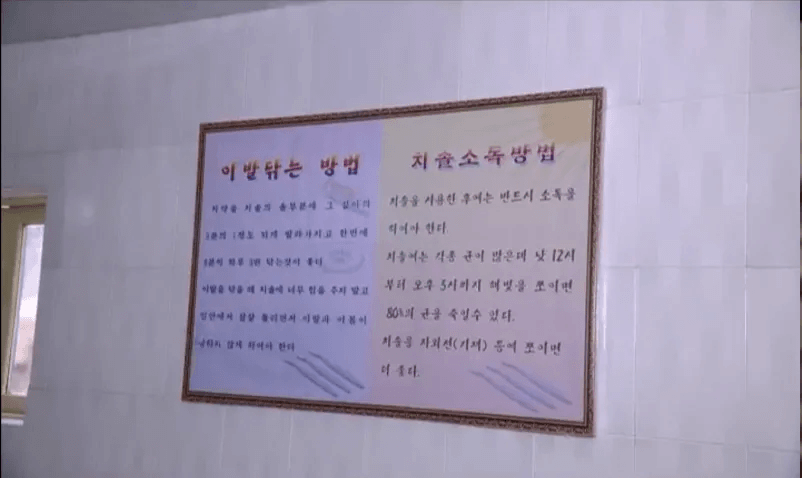 이발닦는 방법
치약을 치솔의 솔부분에 그 길이의
3분의 1정도 되게 발라가지고 한번에
3분씩 하루 3번 닦는것이 좋다
이발을 닦을 때 치솔에 너무 힘을 주지 말고
입안에서 살살 돌리면서 이발과 이몸이
상하지 않게 하여야 한다
치솔소독방법
치솔을 사용한 후에는 반드시 소독을
하여야 한다.
치솔에는 각종 균이 많은데 낮 12시
부터 오후 3시까지 해빛을 쪼이면
80%의 균을 죽일수 있다.
치솔을 자외선(기재) 등에 쪼이면
더 좋다.